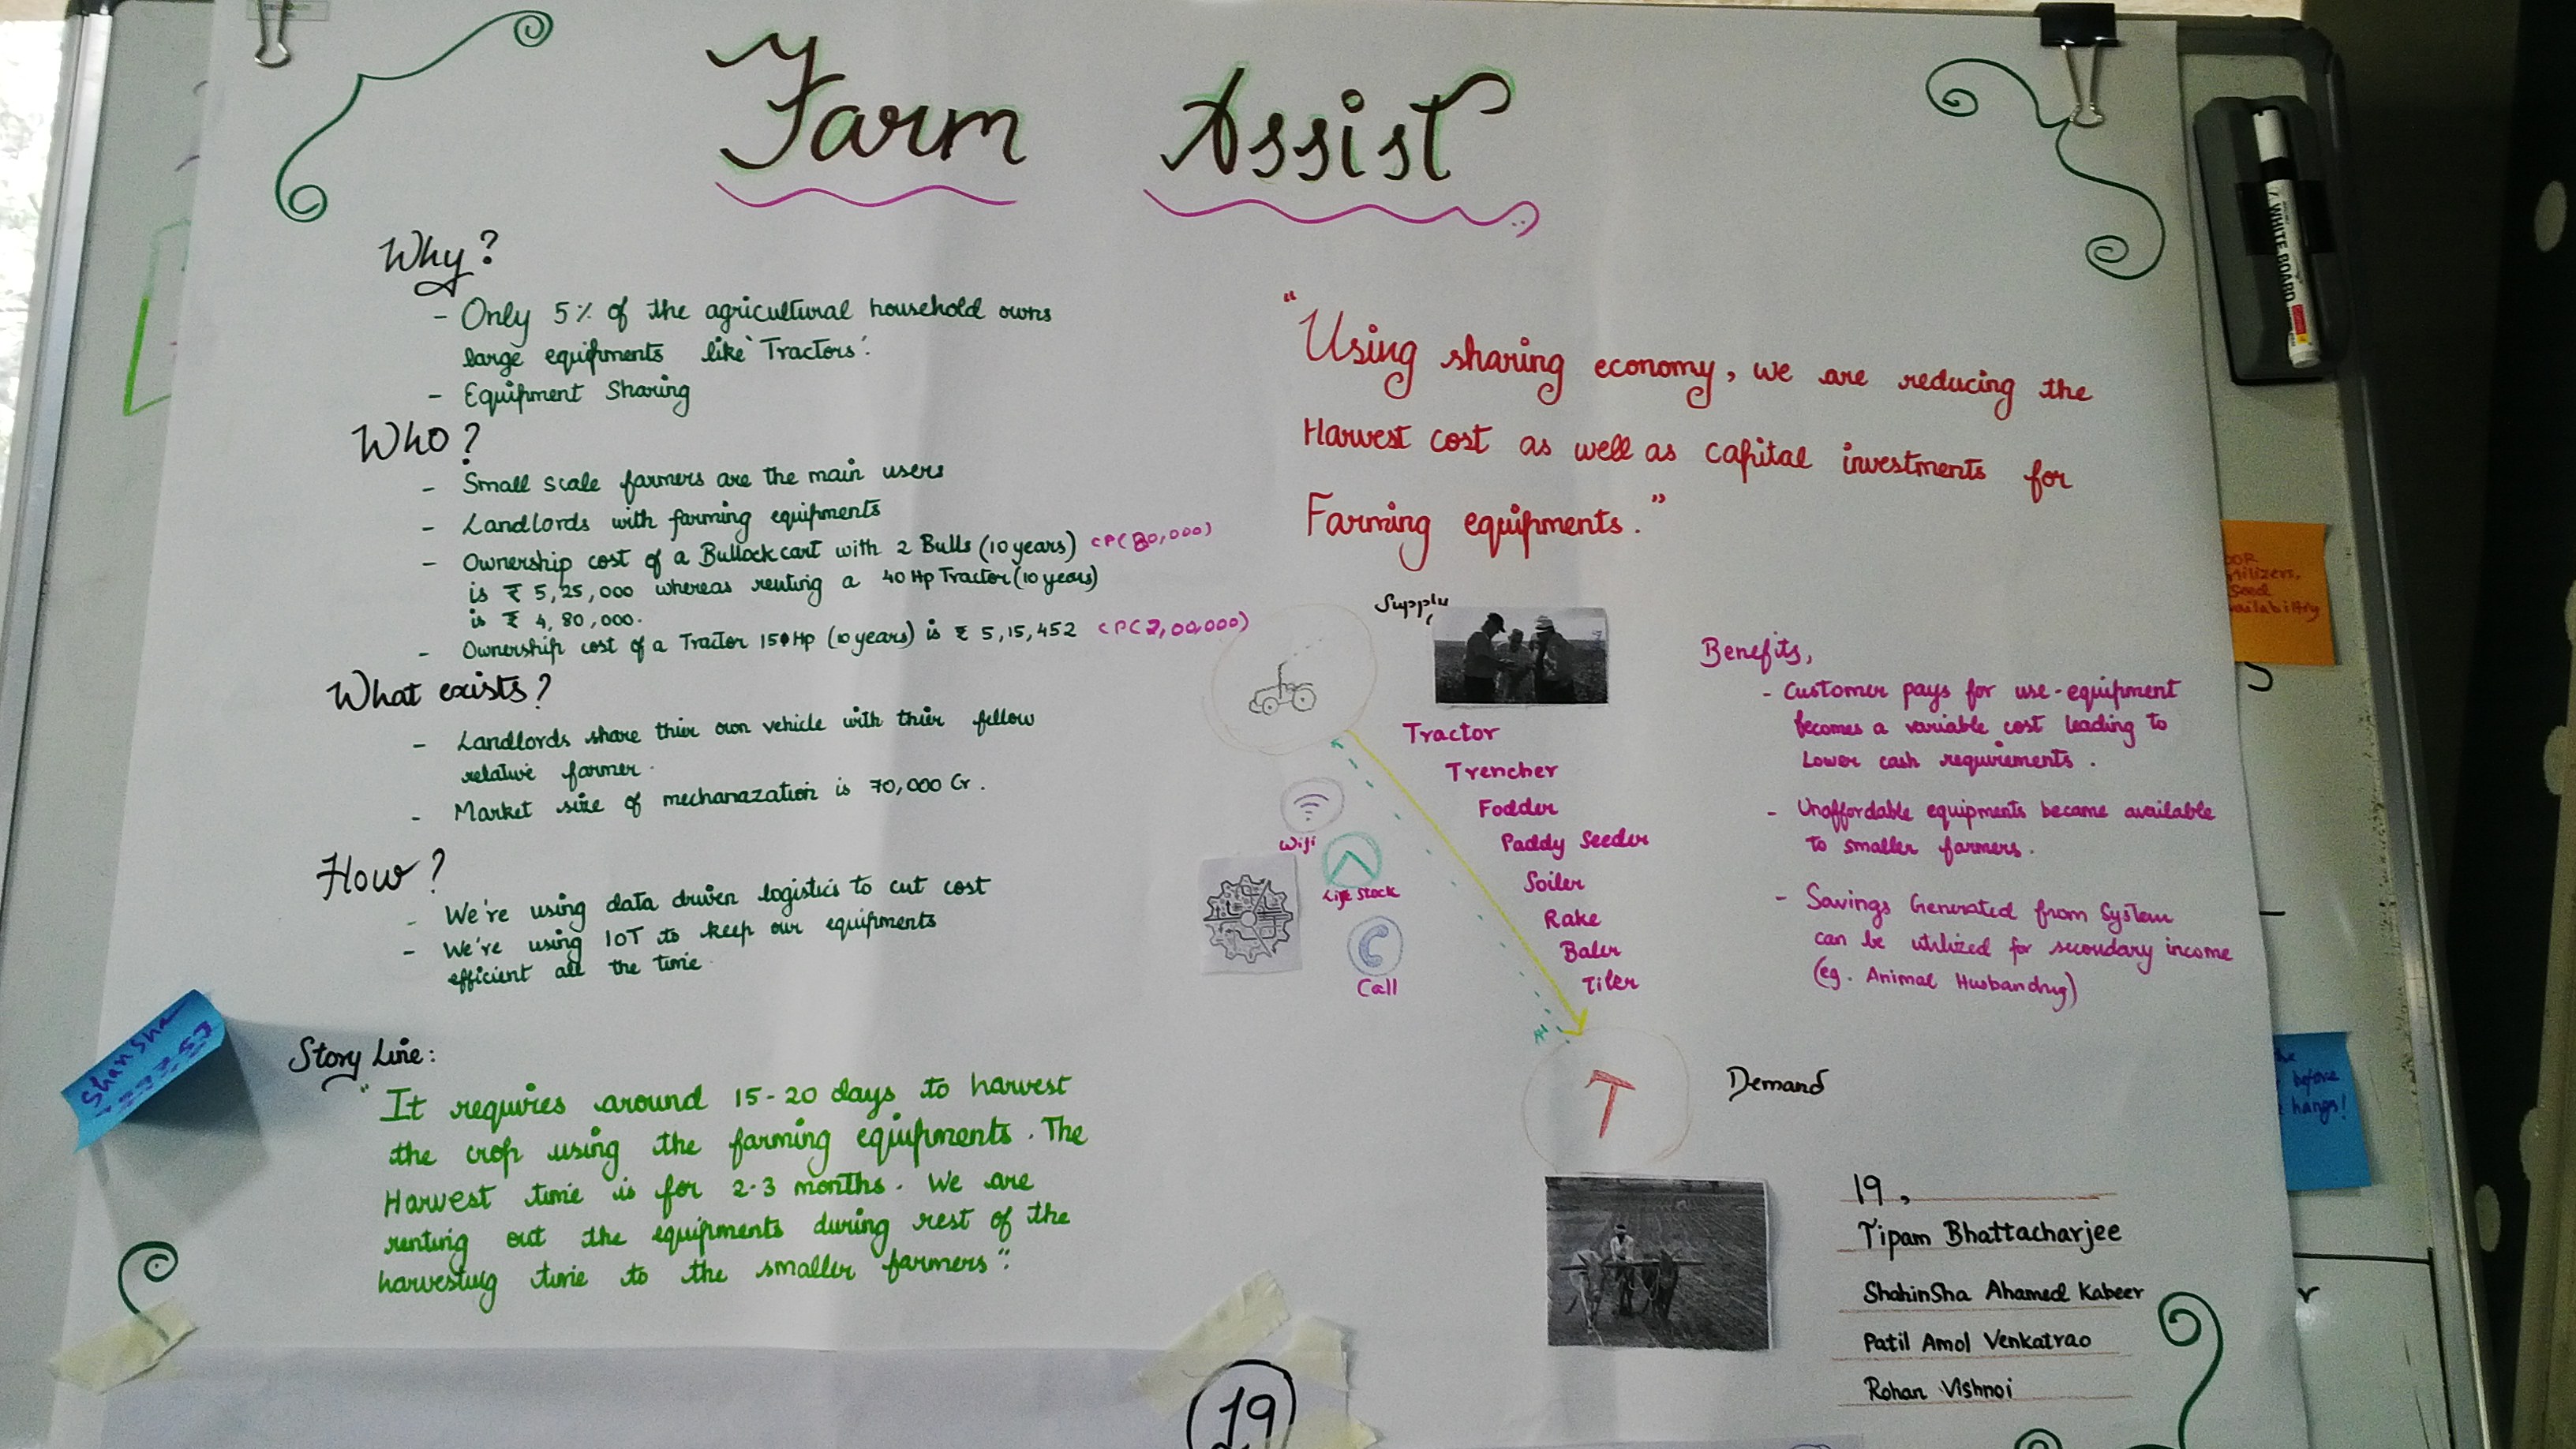 Farm Assist
Why?
- Only 5% of the agricultural household owns
large equipments like 'Tractors'.
- Equipment Sharing
Who?
- Small scale farmers are the main users
- Landlords with farming equipments
- Ownership cost of a Bullock cart with 2 Bulls (10 years) CP(80,000)
is ₹ 5,25,000 whereas renting a 40 Hp Tractor (10 years)
is ₹ 4,80,000.
- Ownership cost of a Tractor Hp (10 years) is ₹ 5,15,452 CP(2,00,000)
What exists?
- Landlords share thier own vehicle with thier fellow
relative farmer.
- Market size of mechanazation is 70,000 Cr.
How?
- We're using data driven logistics to cut cost
- We're using IOT to keep our equipments
efficient all the time.
Story Line:
"It requires around 15-20 days to harvest
the crop using the farming equipments. The
Harvest time is for 2-3 months. We are
renting out the equipments during rest of the
harvesting time to the smaller farmers".
"Using sharing economy, we are reducing the
Harvest cost as well as capital investments for
Farming equipments."
Supply
Tractor
Trencher
Fodder
Paddy Seeder
Soiler
Rake
Baler
Tiler
Wifi
Life Stock
Call
Demand
Benefits,
- Customer pays for use - equipment
becomes a variable cost leading to
Lower cash requirements.
- Unaffordable equipments became available
to smaller farmers.
- Savings Generated from System
can be utilized for secondary income
(eg. Animal Husbandry)
19,
Tipam Bhattacharjee
ShahinSha Ahamed Kabeer
Patil Amol Venkatrao
Rohan Vishnoi
19
WHITE BOARD
Seed
before
hangs!